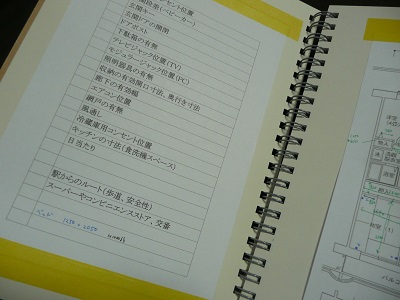 コンセント位置
玄関段差(ベビーカー)
玄関キー
玄関ドアの開閉
ドアポスト
下駄箱の有無
テレビジャック位置(TV)
モジュラージャック位置(PC)
照明器具の有無
収納の有効開口寸法、奥行き寸法
廊下の有効幅
エアコン位置
網戸の有無
風通し
冷蔵庫用コンセント位置
キッチンの寸法(食洗機スペース)
日当たり
駅からのルート(歩道、安全性)
スーパーやコンビニエンスストア、交番
ベッド 1250 × 2050
バルコ